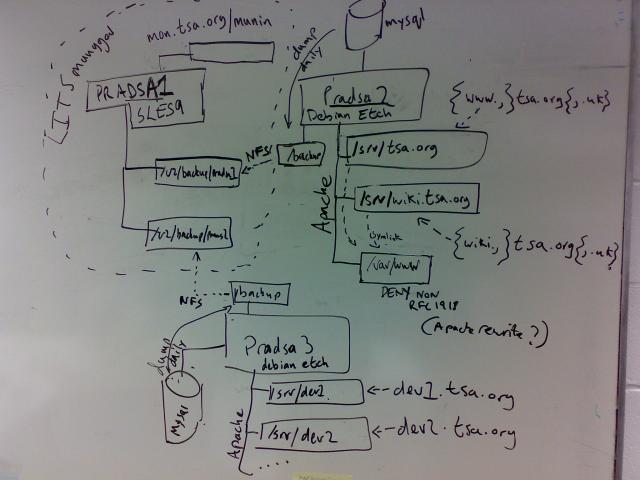 mon.tsa.org/munin
ITS manager
PRADSA1
SLES9
/v2/backup/
/v2/backup/
NFS
/backup
dump
daily
mysql
Pradsa2
Debian Etch
Apache
/srv/tsa.org
{www.,}tsa.org{,.uk}
/srv/wiki.tsa.org
{wiki.,}tsa.org{,.uk}
symlink
/var/www
DENY NON
RFC1918
(Apache rewrite?)
NFS
/backup
dump
daily
Mysql
Pradsa3
debian etch
Apache
/srv/dev1.
dev1.tsa.org
/srv/dev2
dev2.tsa.org
.....